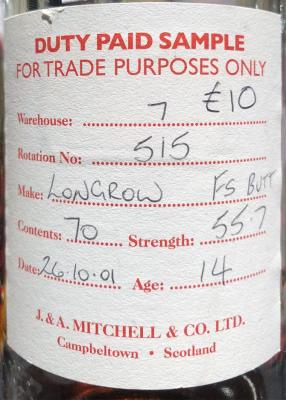 DUTY PAID SAMPLE
FOR TRADE PURPOSES ONLY
Warehouse: 7 £10
Rotation No: 515
Make: LONGROW FS BUTT
Contents: 70 Strength: 55.7
Date: 26.10.01 Age: 14
J. & A. MITCHELL & CO. LTD.
Campbeltown • Scotland